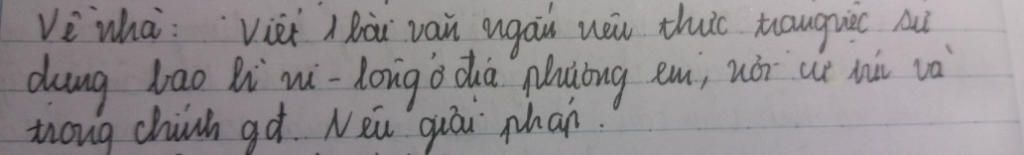 Về nhà: Viết 1 bài văn ngắn nêu thực trạng việc sử
dụng bao bì ni-lông ở địa phương em, nơi cư trú và
trong chính gđ. Nêu giải pháp.